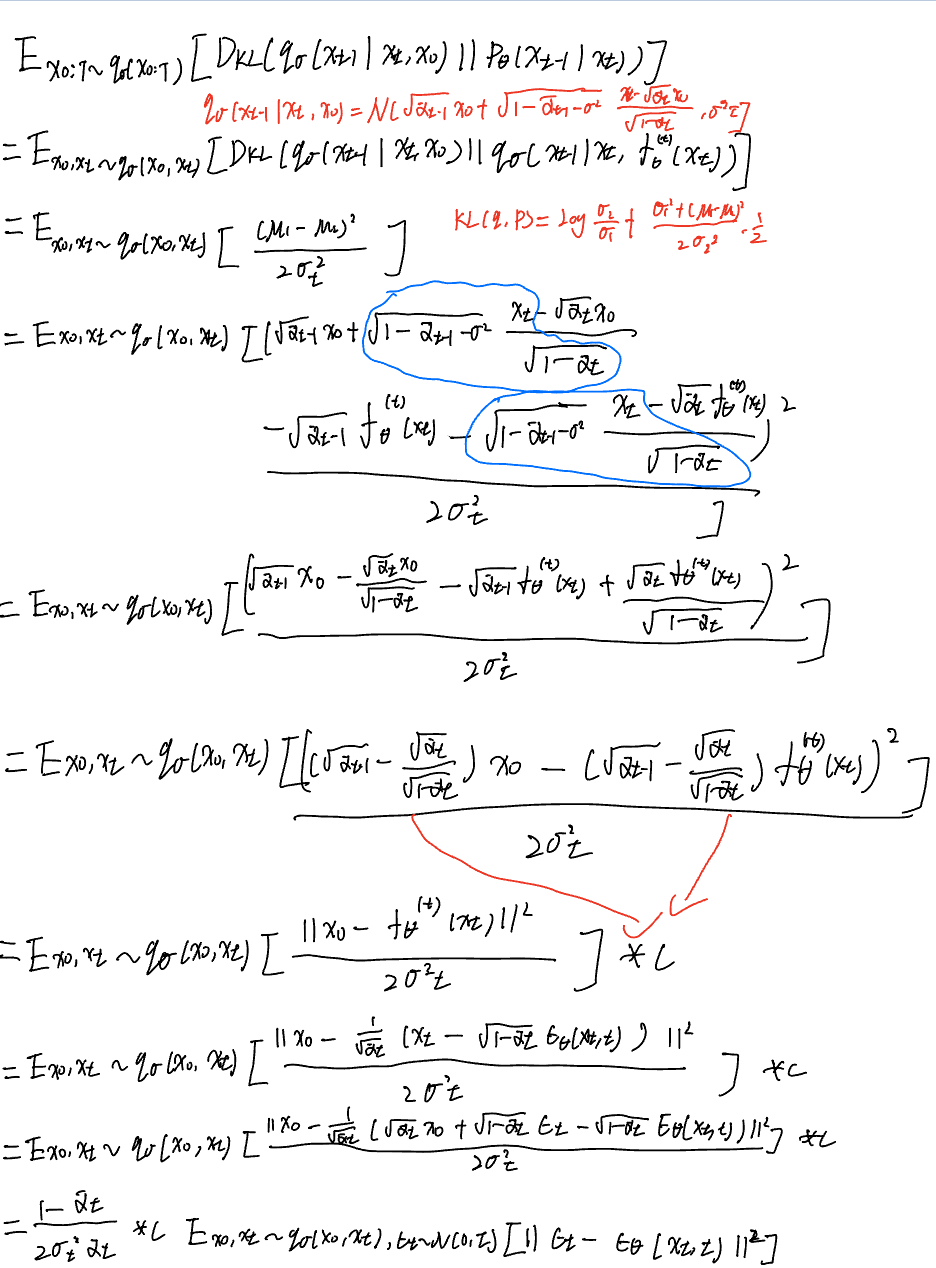 E_{x0:T~qσ(x0:T)} [DKL(qσ(xt-1|xt,x0) || Pθ(xt-1|xt))]
qσ(xt-1|xt,x0) = N(√ᾱt-1 x0 + √(1-ᾱt-1-σ²) (xt-√ᾱt x0)/√(1-ᾱt), σ²I]
= E_{x0,xt~qσ(x0,xt)} [DKL(qσ(xt-1|xt,x0) || qσ(xt-1|xt, fθ^(t)(xt))]
= E_{x0,xt~qσ(x0,xt)} [ (μ1-μ2)² / 2σt² ]
KL(q,P) = log σ2/σ1 + (σ1²+(μ1-μ2)²)/2σ2² · 1/2
= E_{x0,xt~qσ(x0,xt)} [(√ᾱt-1 x0 + √(1-ᾱt-1-σ²) (xt-√ᾱt x0)/√(1-ᾱt)
- √ᾱt-1 fθ^(t)(xt) - √(1-ᾱt-1-σ²) (xt-√ᾱt fθ^(t)(xt))/√(1-ᾱt) )²
2σt² ]
= E_{x0,xt~qσ(x0,xt)} [ (√ᾱt-1 x0 - √ᾱt x0/√(1-ᾱt) - √ᾱt-1 fθ^(t)(xt) + √ᾱt fθ^(t)(xt)/√(1-ᾱt) )² / 2σt² ]
= E_{x0,xt~qσ(x0,xt)} [ ((√ᾱt-1 - √ᾱt/√(1-ᾱt)) x0 - (√ᾱt-1 - √ᾱt/√(1-ᾱt)) fθ^(t)(xt))² / 2σt² ]
= E_{x0,xt~qσ(x0,xt)} [ ||x0 - fθ^(t)(xt)||² / 2σ²t ] * C
= E_{x0,xt~qσ(x0,xt)} [ ||x0 - 1/√ᾱt (xt - √(1-ᾱt) εθ(xt,t))||² / 2σ²t ] * C
= E_{x0,xt~qσ(x0,xt)} [ ||x0 - 1/√ᾱt (√ᾱt x0 + √(1-ᾱt) εt - √(1-ᾱt) εθ(xt,t))||² / 2σt² ] * C
= (1-ᾱt)/(2σt²ᾱt) * C E_{x0,xt~qσ(x0,xt), εt~N(0,I)} [|| εt - εθ(xt,t) ||²]